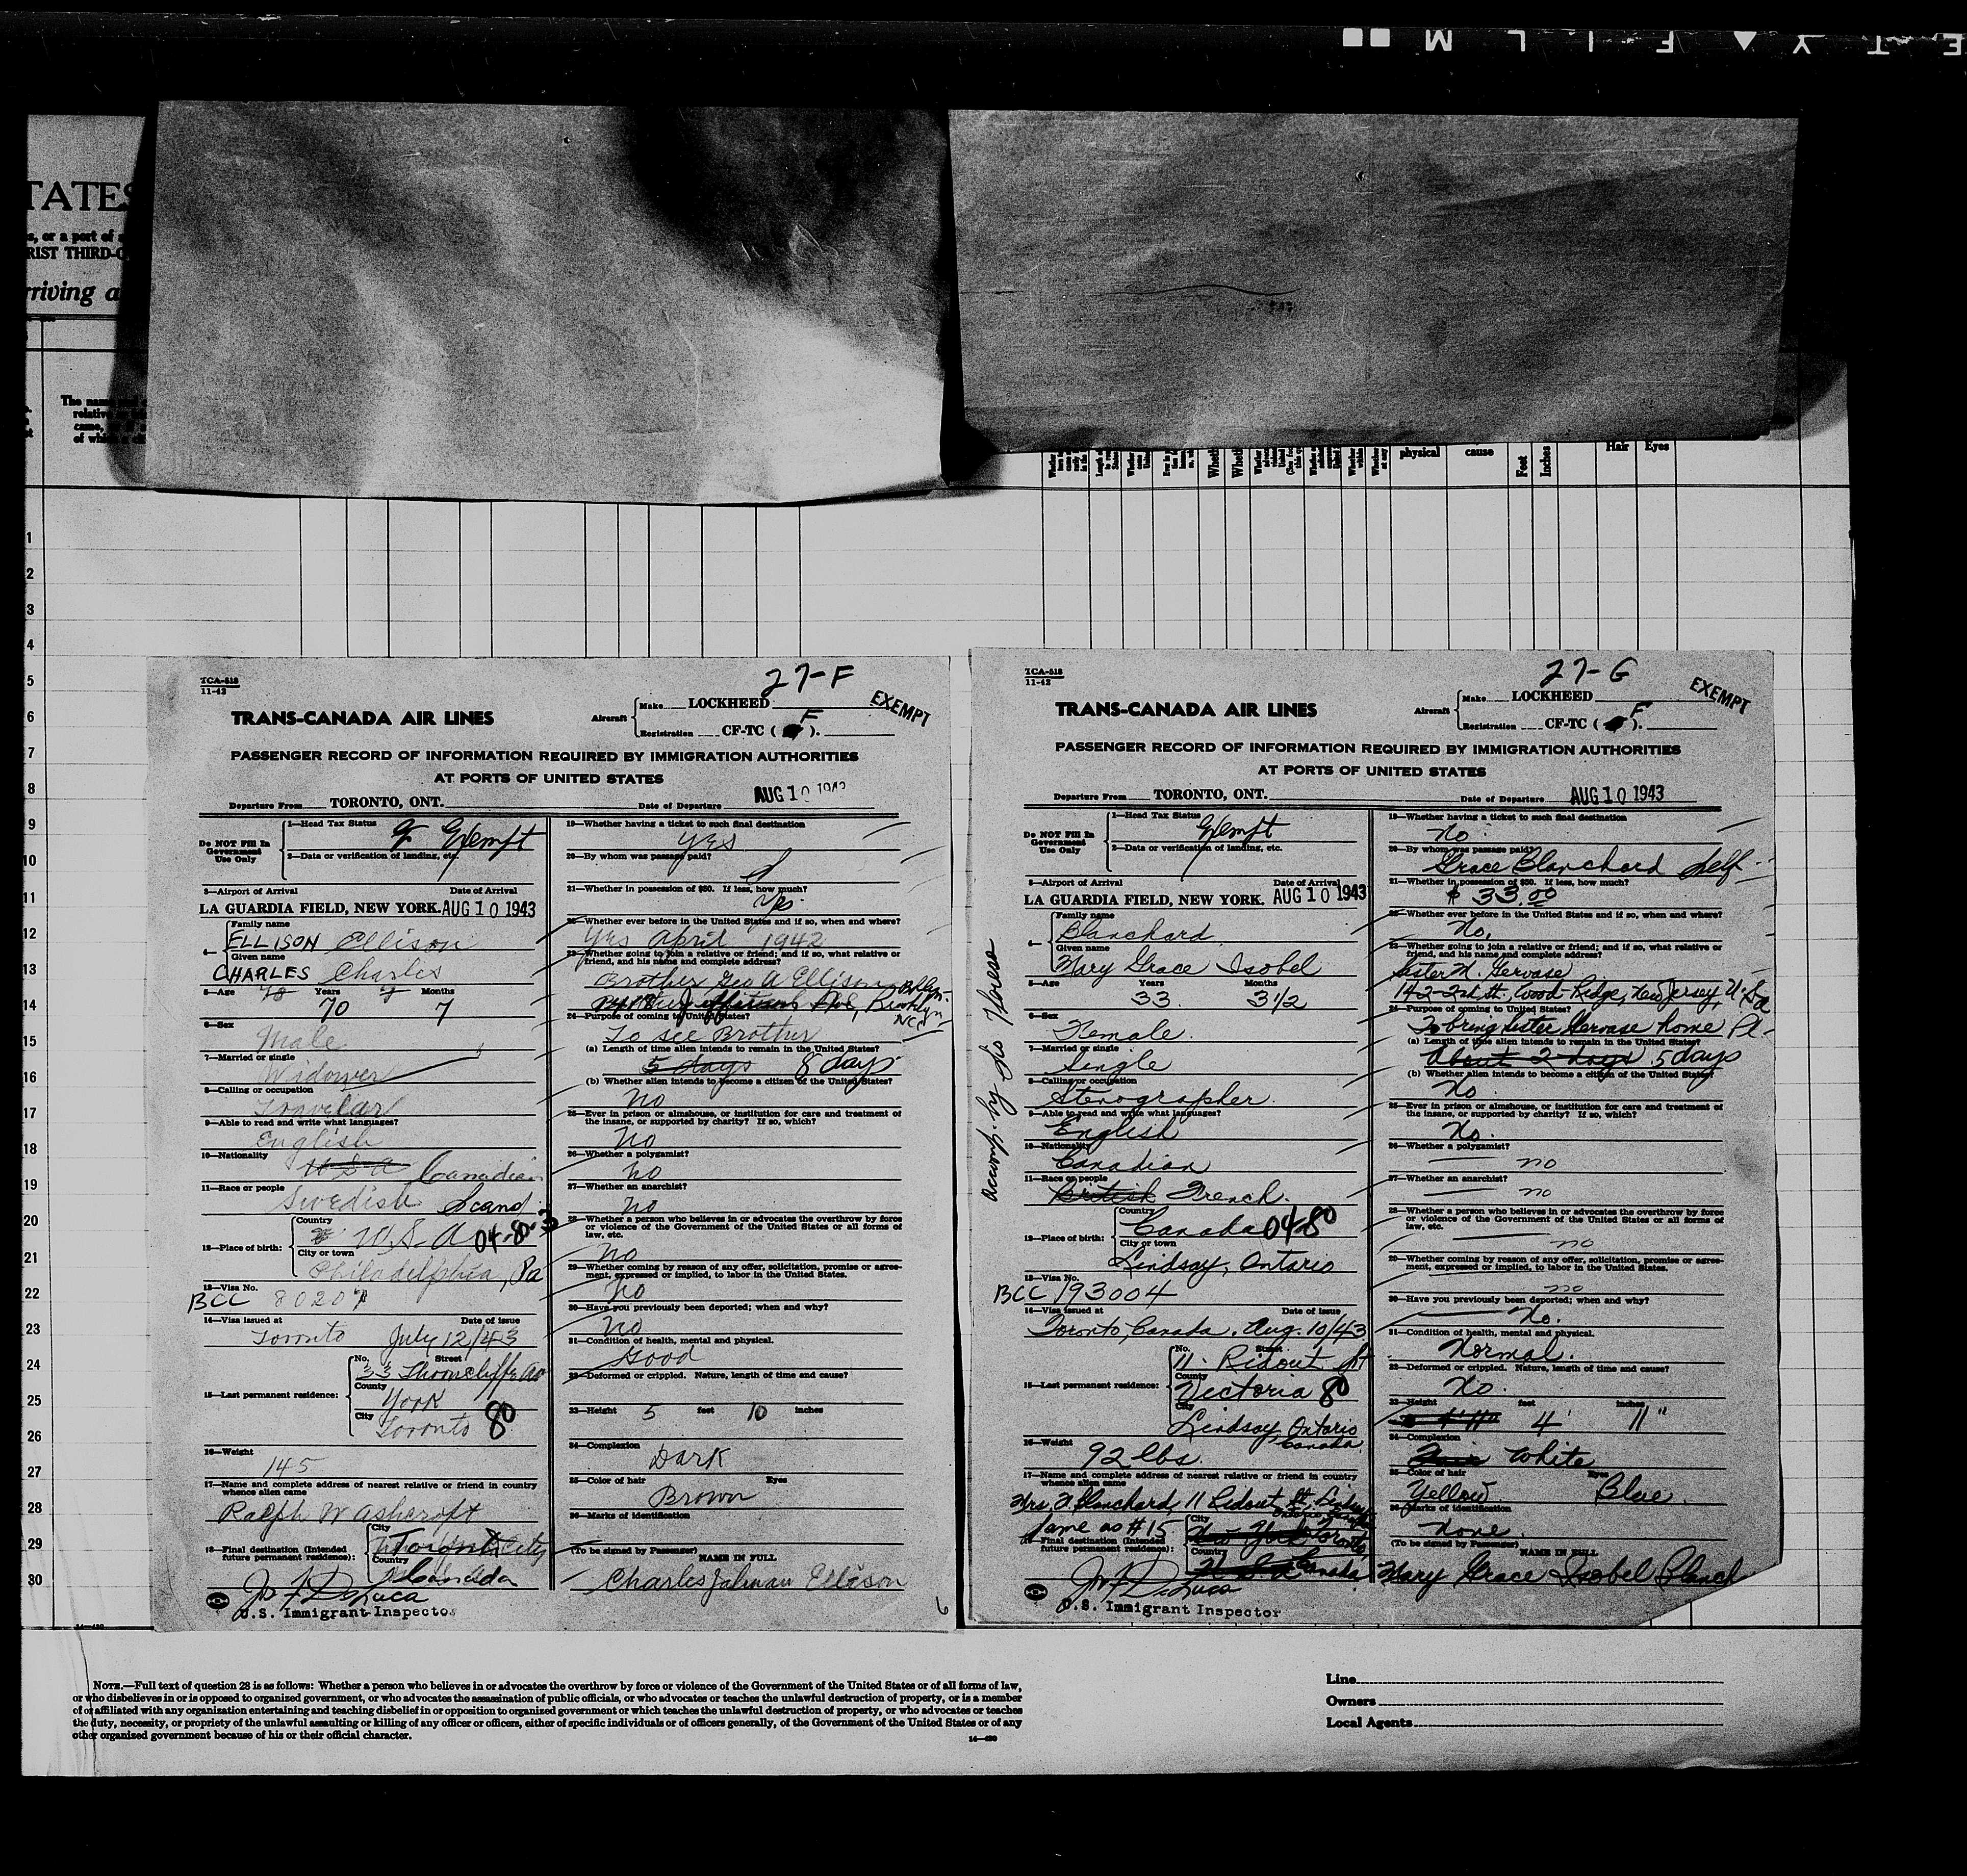 E T Y ▲ F I L M ■■
TATES
s, or a port of
RIST THIRD-C
rriving a
The name
relative
came,
of which
physical
cause
Feet
Inches
Hair
Eyes
1
2
3
4
5
6
7
8
9
10
11
12
13
14
15
16
17
18
19
20
21
22
23
24
25
26
27
28
29
30
TCA-518
11-42
27-F
EXEMPT
TRANS-CANADA AIR LINES
Aircraft
Make LOCKHEED
Registration CF-TC ( F ).
PASSENGER RECORD OF INFORMATION REQUIRED BY IMMIGRATION AUTHORITIES
AT PORTS OF UNITED STATES
Departure From TORONTO, ONT. Date of Departure AUG 10 1943
Do NOT Fill In Government Use Only
1—Head Tax Status Exempt
2—Data or verification of landing, etc.
3—Airport of Arrival Date of Arrival
LA GUARDIA FIELD, NEW YORK. AUG 10 1943
4— Family name
ELLISON Ellison
Given name
CHARLES Charles
5—Age Years Months
70 7
6—Sex
Male
7—Married or single
Widower
8—Calling or occupation
9—Able to read and write what languages?
English
10—Nationality
U S A Canadian
11—Race or people
Swedish Scand
12—Place of birth:
Country
U.S.A 04-80-3
City or town
Philadelphia, Pa
13—Visa No.
BCC 80207
14—Visa issued at Date of issue
Toronto July 12/43
15—Last permanent residence:
No. Street
33 Thorncliffe Av
County
York
City
Toronto 80
16—Weight
145
17—Name and complete address of nearest relative or friend in country
whence alien came
Ralph W Ashcroft
18—Final destination (Intended
future permanent residence):
City
Toronto City
Country
Canada
Jno F DeLuca
U.S. Immigrant Inspector
19—Whether having a ticket to such final destination
Yes
20—By whom was passage paid?
21—Whether in possession of $50. If less, how much?
Yes
22—Whether ever before in the United States and if so, when and where?
Yes April 1942
23—Whether going to join a relative or friend; and if so, what relative or
friend, and his name and complete address?
Brother Geo A Ellison
Jefferson Ave, Brooklyn
24—Purpose of coming to United States?
To see Brother
(a) Length of time alien intends to remain in the United States?
5 days 8 days
(b) Whether alien intends to become a citizen of the United States?
No
25—Ever in prison or almshouse, or institution for care and treatment of
the insane, or supported by charity? If so, which?
No
26—Whether a polygamist?
No
27—Whether an anarchist?
No
28—Whether a person who believes in or advocates the overthrow by force
or violence of the Government of the United States or all forms of
law, etc.
No
29—Whether coming by reason of any offer, solicitation, promise or agree-
ment, expressed or implied, to labor in the United States.
No
30—Have you previously been deported; when and why?
No
31—Condition of health, mental and physical.
Good
32—Deformed or crippled. Nature, length of time and cause?
33—Height 5 feet 10 inches
34—Complexion
Dark
35—Color of hair Eyes
Brown
36—Marks of identification
(To be signed by Passenger) NAME IN FULL
Charles Ellison
TCA-518
11-42
27-G
EXEMPT
TRANS-CANADA AIR LINES
Aircraft
Make LOCKHEED
Registration CF-TC ( F ).
PASSENGER RECORD OF INFORMATION REQUIRED BY IMMIGRATION AUTHORITIES
AT PORTS OF UNITED STATES
Departure From TORONTO, ONT. Date of Departure AUG 10 1943
Do NOT Fill In Government Use Only
1—Head Tax Status
Exempt
2—Data or verification of landing, etc.
3—Airport of Arrival Date of Arrival
LA GUARDIA FIELD, NEW YORK. AUG 10 1943
4— Family name
Blanchard
Given name
Mary Grace Isobel
5—Age Years Months
33 3 1/2
6—Sex
Female
7—Married or single
Single
8—Calling or occupation
Stenographer
9—Able to read and write what languages?
English
10—Nationality
Canadian
11—Race or people
British French.
12—Place of birth:
Country
Canada 04-80
City or town
Lindsay, Ontario
13—Visa No.
BCC 193004
14—Visa issued at Date of issue
Toronto, Canada. Aug. 10/43
15—Last permanent residence:
No. Street
11 Ridout St
County
Victoria 80
City
Lindsay, Ontario
Canada
16—Weight
92 lbs.
17—Name and complete address of nearest relative or friend in country
whence alien came
Mrs Blanchard, 11 Ridout St. Lindsay
Same as #15
18—Final destination (Intended
future permanent residence):
City
New York Toronto
Country
U S A Canada
Jno F DeLuca
U.S. Immigrant Inspector
19—Whether having a ticket to such final destination
No
20—By whom was passage paid?
Grace Blanchard Self
21—Whether in possession of $50. If less, how much?
$ 33.00
22—Whether ever before in the United States and if so, when and where?
No.
23—Whether going to join a relative or friend; and if so, what relative or
friend, and his name and complete address?
Sister M. Gervase
142-2nd St., Wood Ridge, New Jersey, U.S.a
24—Purpose of coming to United States?
To bring Sister Gervase home
(a) Length of time alien intends to remain in the United States?
About 2 days 5 days
(b) Whether alien intends to become a citizen of the United States?
No
25—Ever in prison or almshouse, or institution for care and treatment of
the insane, or supported by charity? If so, which?
No.
26—Whether a polygamist?
no
27—Whether an anarchist?
no
28—Whether a person who believes in or advocates the overthrow by force
or violence of the Government of the United States or all forms of
law, etc.
no
29—Whether coming by reason of any offer, solicitation, promise or agree-
ment, expressed or implied, to labor in the United States.
no
30—Have you previously been deported; when and why?
No.
31—Condition of health, mental and physical.
Normal.
32—Deformed or crippled. Nature, length of time and cause?
No.
33—Height feet inches
4' 11"
34—Complexion
Fair White
35—Color of hair Eyes
Yellow Blue.
36—Marks of identification
None.
(To be signed by Passenger) NAME IN FULL
Mary Grace Isobel Blanch
NOTE.—Full text of question 28 is as follows: Whether a person who believes in or advocates the overthrow by force or violence of the Government of the United States or of all forms of law,
or who disbelieves in or is opposed to organized government, or who advocates the assassination of public officials, or who advocates or teaches the unlawful destruction of property, or is a member
of or affiliated with any organization entertaining and teaching disbelief in or opposition to organized government or which teaches the unlawful destruction of property, or who advocates or teaches
the duty, necessity, or propriety of the unlawful assaulting or killing of any officer or officers, either of specific individuals or of officers generally, of the Government of the United States or of any
other organized government because of his or their official character.
Line
Owners
Local Agents